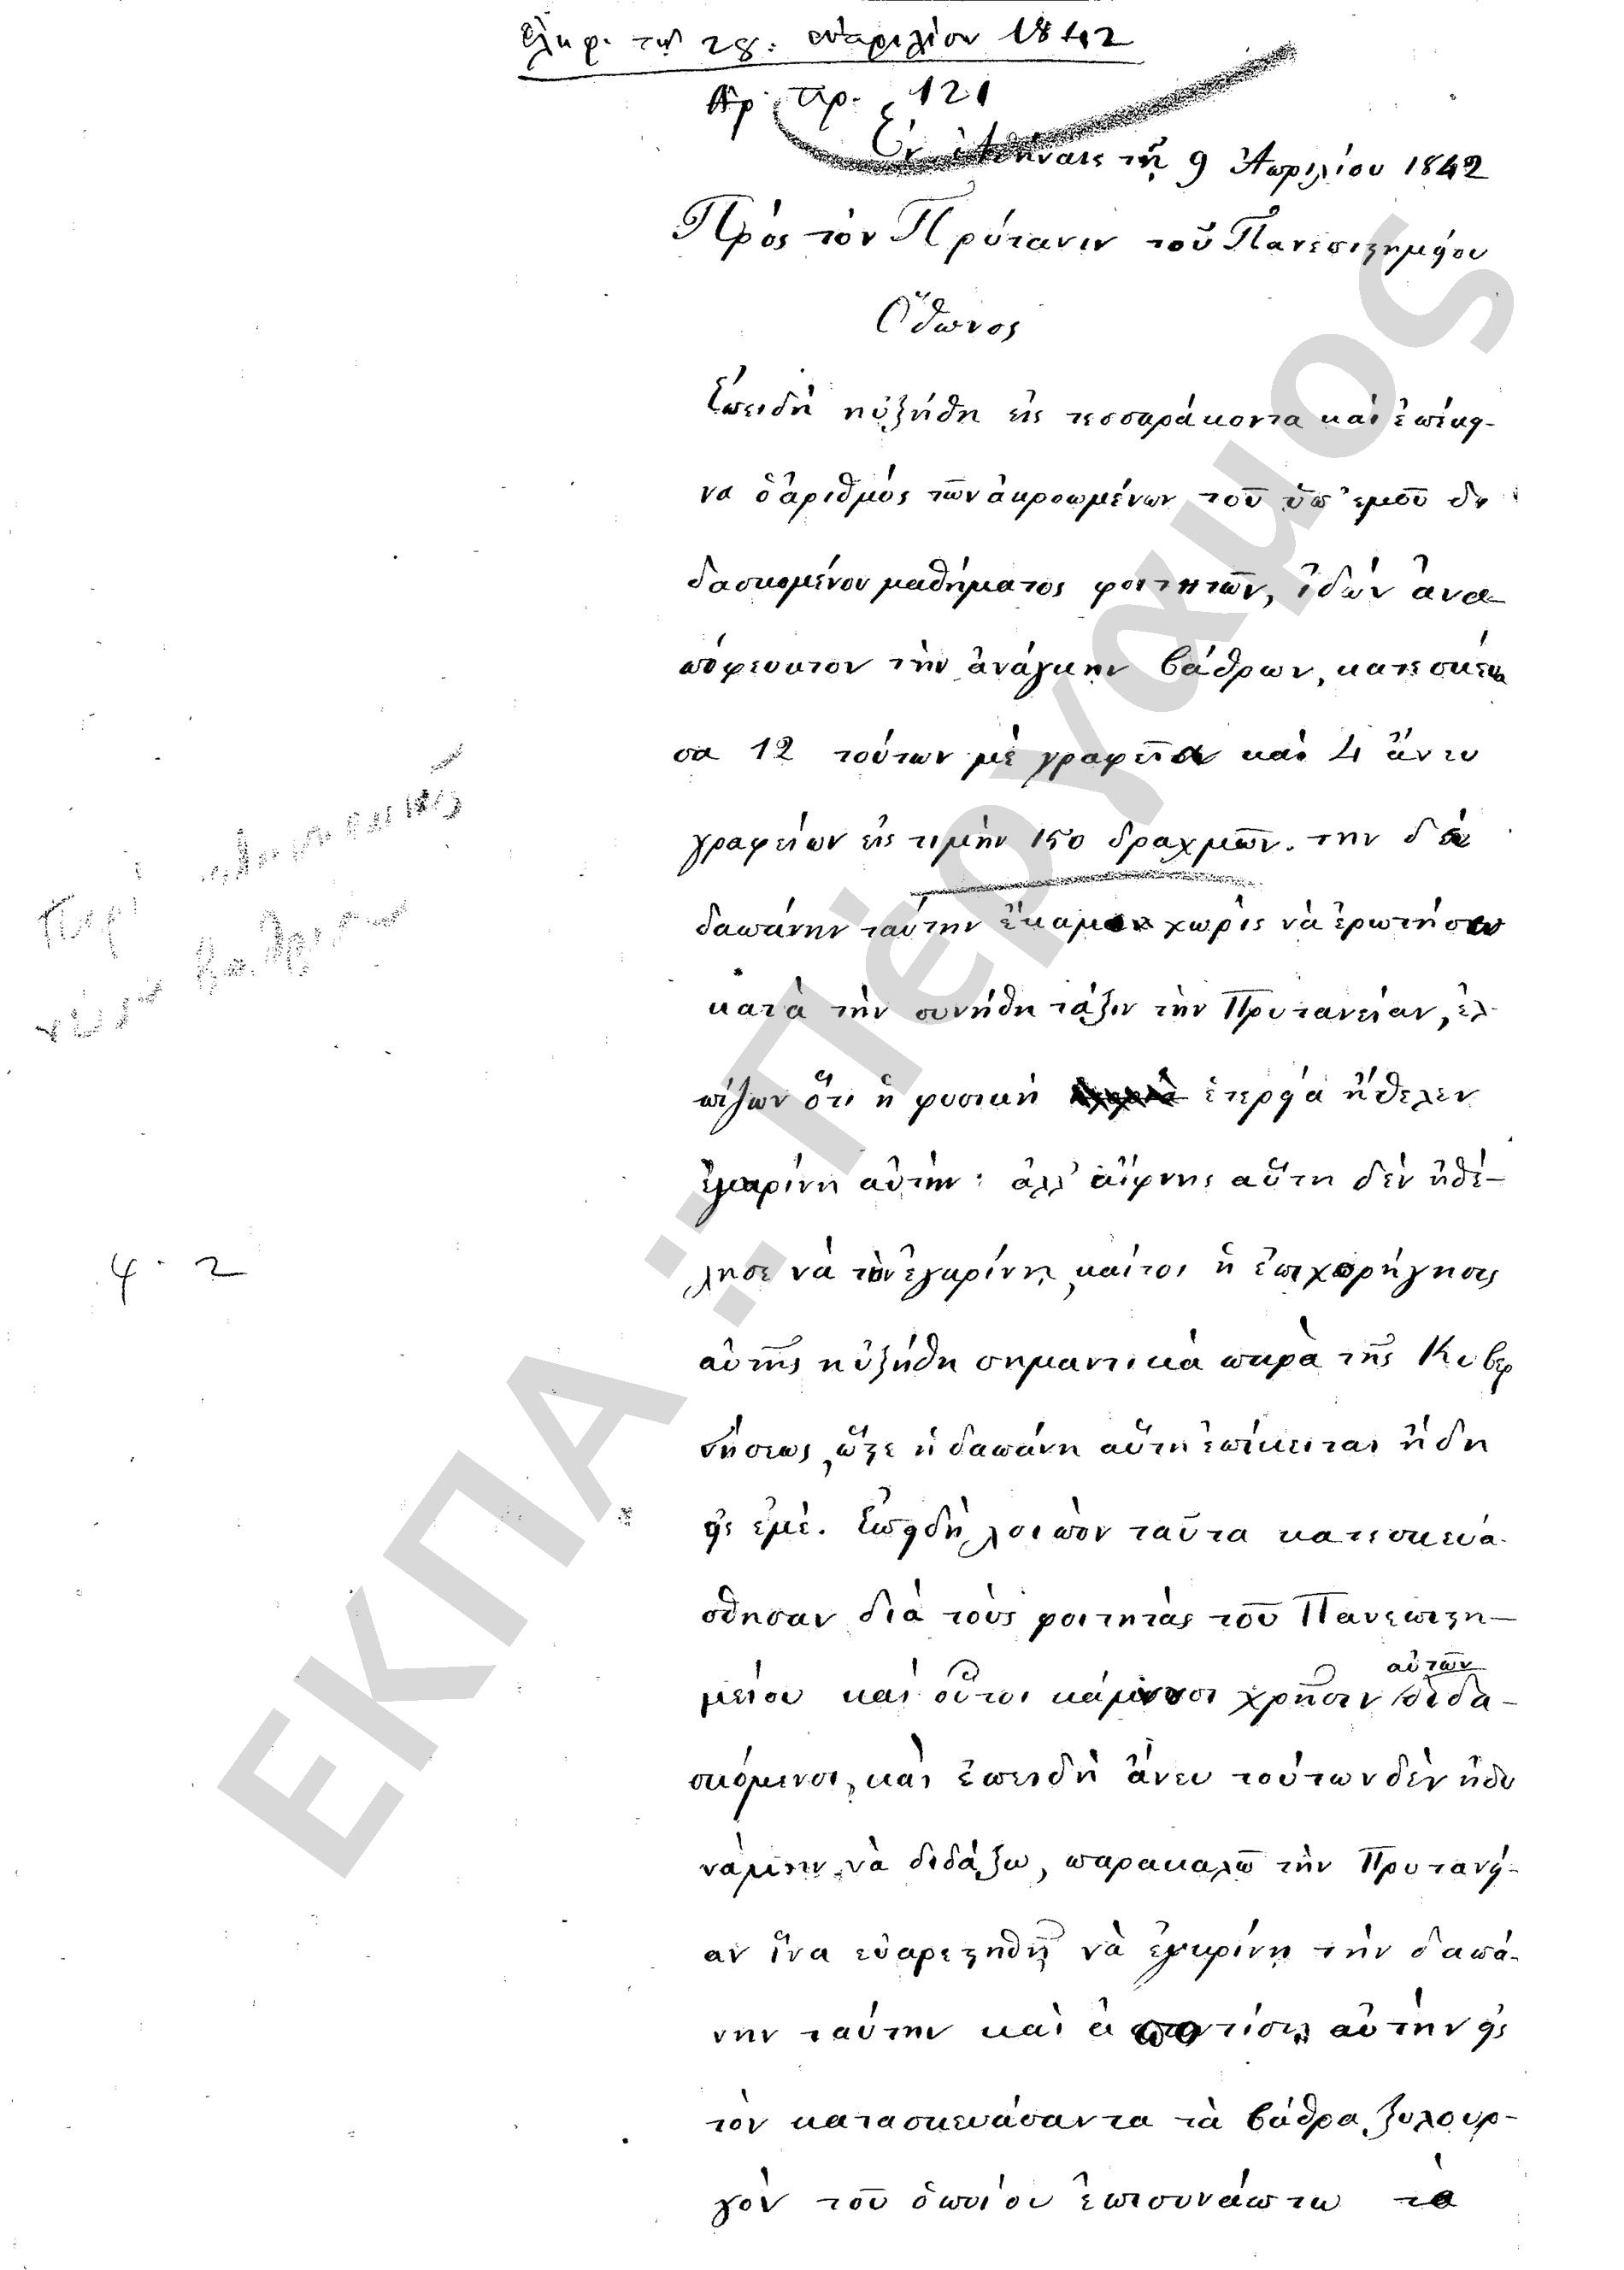 Ἀρ. πρ. 121
Ἐν Ἀθήναις τῇ 9 Ἀπριλίου 1842
Πρὸς τὸν Πρύτανιν τοῦ Πανεπιστημείου
Ὄθωνος
Ἐπειδὴ ηὐξήθη εἰς τεσσαράκοντα καὶ ἐπέκει-
να ὁ ἀριθμὸς τῶν ἀκροωμένων τοῦ ὑπ' ἐμοῦ δι
δασκομένου μαθήματος φοιτητῶν, ἰδὼν ἀνα-
πόφευκτον τὴν ἀνάγκην βάθρων, κατεσκεύα
σα 12 τούτων μὲ γραφεῖα καὶ 4 ἄνευ
γραφείων εἰς τιμὴν 150 δραχμῶν. την δὲ
δαπάνην ταύτην ἔκαμον χωρὶς νὰ ἐρωτήσω
κατὰ τὴν συνήθη τάξιν τὴν Πρυτανείαν, ἐλ-
πίζων ὅτι ἡ φυσικὴ ἑτερεία ἤθελεν
ἐγκρίνη αὐτὴν· ἀλλ' αἴφνης αὕτη δὲν ἠθέ-
λησε νὰ τὴν ἐγκρίνῃ, καίτοι ἡ ἐπιχορήγησις
αὐτῆς ηὐξήθη σημαντικὰ παρὰ τῆς Κυβερ
νήσεως, ὥστε ἡ δαπάνη αὕτη ἐπίκειται ἤδη
εἰς ἐμέ. Ἐπειδὴ λοιπὸν ταῦτα κατεσκευά-
σθησαν διὰ τοὺς φοιτητὰς τοῦ Πανεπιστη-
μείου καὶ οὗτοι κάμνουσι χρῆσιν αὐτῶν διδα-
σκόμενοι, καὶ ἐπειδὴ ἄνευ τούτων δὲν ἠδυ
νάμην νὰ διδάξω, παρακαλῶ τὴν Πρυτανεί-
αν ἵνα εὐαρεστηθῇ νὰ ἐγκρίνῃ τὴν δαπά-
νην ταύτην καὶ ἀποτίσῃ αὐτὴν εἰς
τὸν κατασκευάσαντα τὰ βάθρα ξυλουρ-
γὸν τοῦ ὁποίου ἐπισυνάπτω τὸ
ΕΚΠΑ ΠέργαΜος